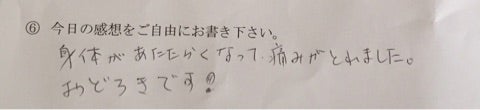 ⑥ 今日の感想をご自由にお書き下さい。
身体があたたらくなって、痛みがとれました。
おどろきです!